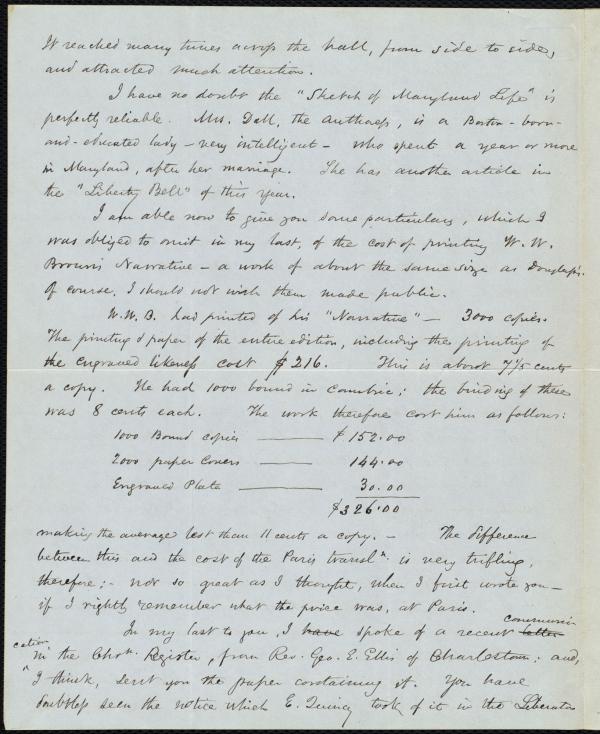 It reached many times across the hall, from side to side,
and attracted much attention.
I have no doubt the "Sketch of Maryland Life" is
perfectly reliable. Mrs. Dall, the authoress, is a Boston-born-
and-educated lady - very intelligent - who spent a year or more
in Maryland, after her marriage. She has another article in
the "Liberty Bell" of this year.
I am able now to give you some particulars, which I
was obliged to omit in my last, of the cost of printing W. W.
Brown's Narrative - a work of about the same size as Douglass's.
Of course, I should not wish them made public.
W.W.B. had printed of his "Narrative" - 3000 copies.
The printing & paper of the entire edition, including the printing of
the engraved likeness cost $216. This is about 7 1/5 cents
a copy. He had 1000 bound in cambric; the binding of these
was 8 cents each. The work therefore cost him as follows:
1000 Bound copies — $152.00
2000 paper Covers — 144.00
Engraved Plate — 30.00
$326.00
making the average less than 11 cents a copy. - The difference
between this and the cost of the Paris transln. is very trifling,
therefore; - not so great as I thought, when I first wrote you -
if I rightly remember what the price was, at Paris.
In my last to you, I have spoke of a recent letter communi-
cation in the Chrn. Register, from Rev. Geo. E. Ellis of Charlestown; and,
I think, sent you the paper containing it. You have
doubtless seen the notice which E. Quincy took of it in the Liberator